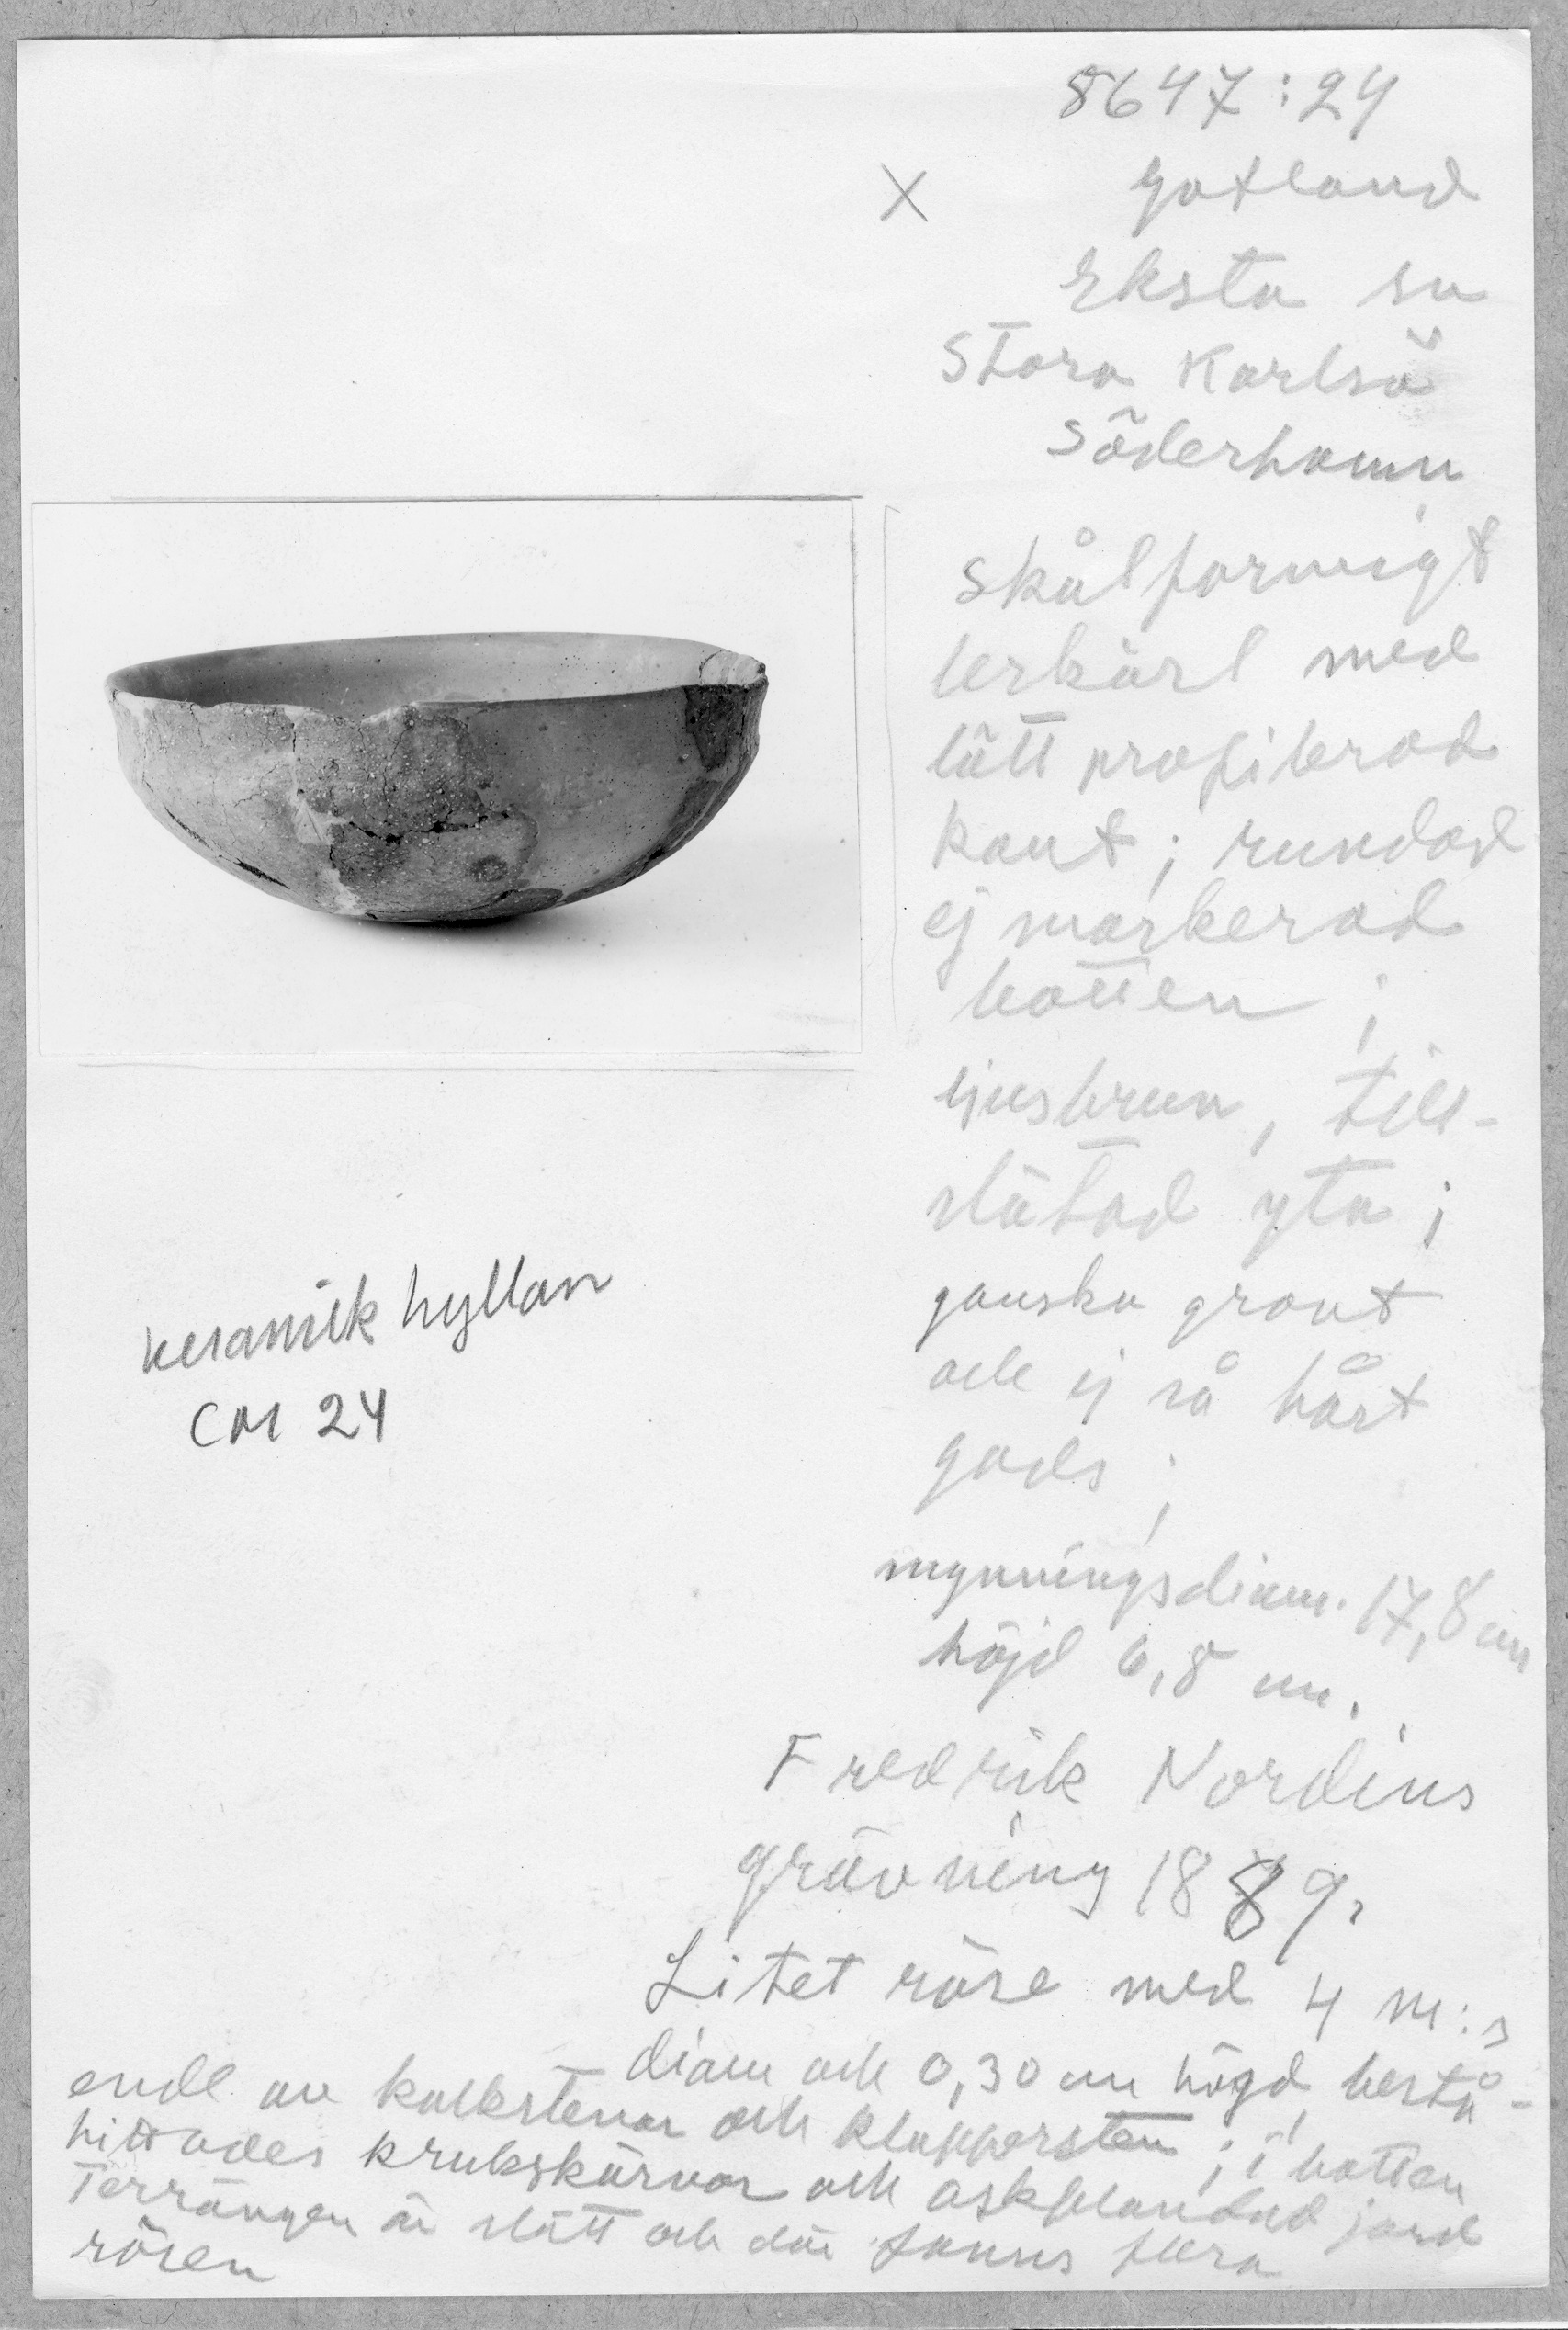 8647:24
X Gotland
Eksta sn
Stora Karlsö
Söderhamn
Skålformigt
lerkärl med
lätt profilerad
kant; rundad
ej markerad
botten;
ljusbrun, till-
slätad yta;
ganska grovt
och ej så hårt
gods;
mynningsdiam. 17,8 cm
höjd 6,8 cm.
keramik hyllan
CM 24
Fredrik Nordins
grävning 1889.
Litet röse med 4 m:s
diam och 0,30 m högd bestå-
ende av kalkstenar och klappersten; i botten
hittades krukskärvor och askblandad jord
Terrängen är slätt och där fanns flera
rösen